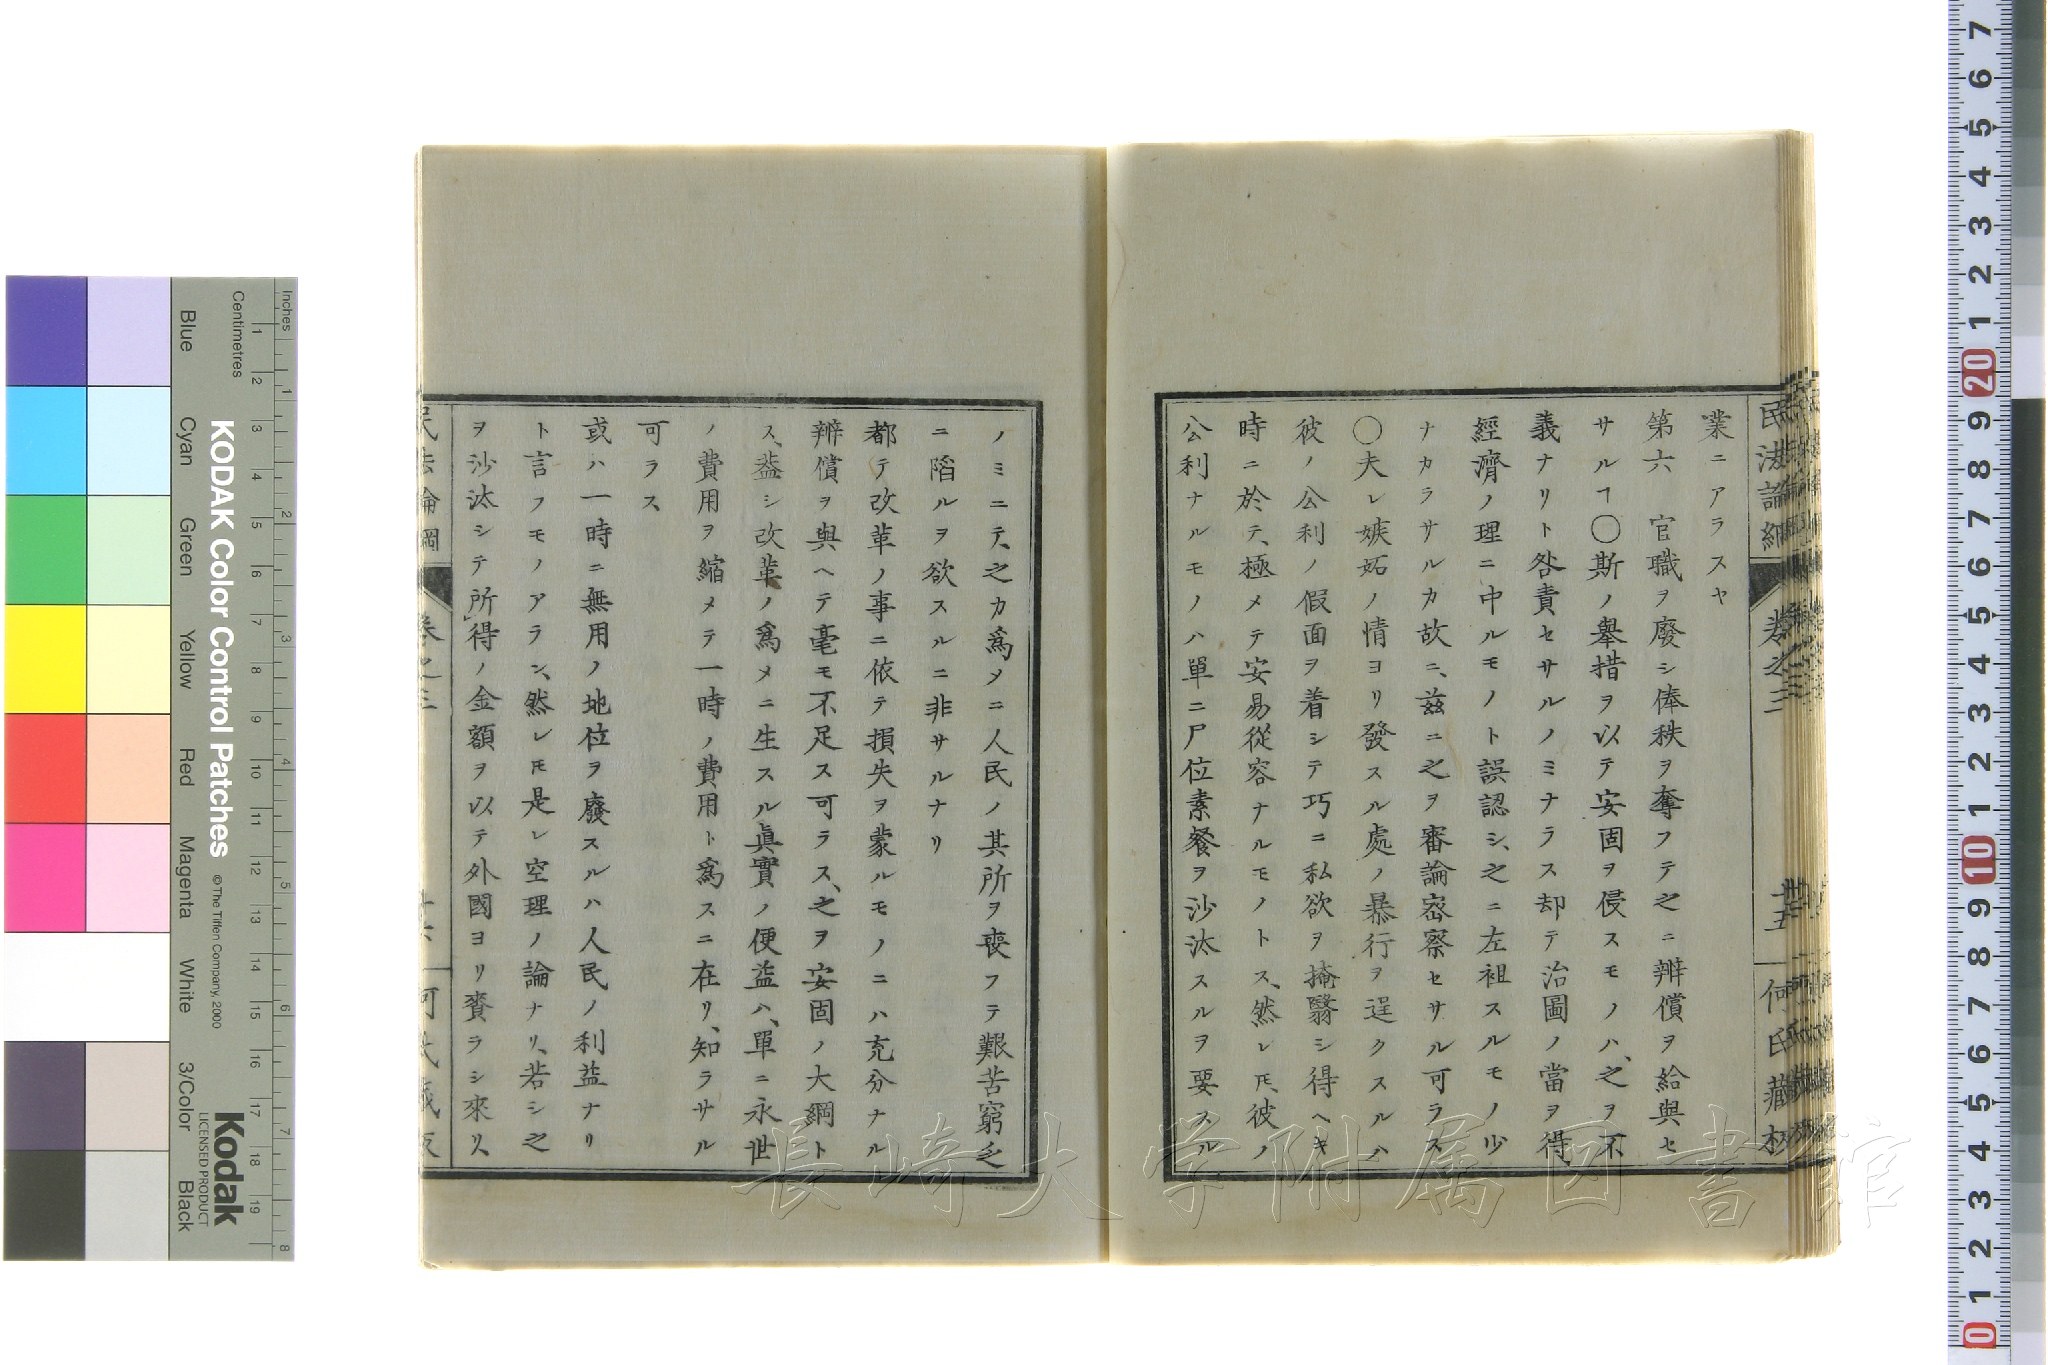 民法論綱
卷之三
廿五
何氏藏板
業ニアラスヤ
第六 官職ヲ廢シ俸秩ヲ奪フテ之ニ辨償ヲ給與セ
サルヿ〇斯ノ擧措ヲ以テ安固ヲ侵スモノハ、之ヲ不
義ナリト咎責セサルノミナラス却テ治圖ノ當ヲ得、
經濟ノ理ニ中ルモノト誤認シ、之ニ左袒スルモノ少
ナカラサルカ故ニ、茲ニ之ヲ審論密察セサル可ラス
〇夫レ嫉妬ノ情ヨリ發スル處ノ暴行ヲ逞クスルハ
彼ノ公利ノ假面ヲ着シテ巧ニ私欲ヲ掩翳シ得ヘキ
時ニ於テ、極メテ安易從容ナルモノトス、然レ𪜈、彼ノ
公利ナルモノハ單ニ尸位素餐ヲ沙汰スルヲ要スル
ノミニテ、之カ爲メニ人民ノ其所ヲ喪フテ艱苦窮乏
ニ陷ルヲ欲スルニ非サルナリ
都テ改革ノ事ニ依テ損失ヲ蒙ルモノニハ充分ナル
辨償ヲ與ヘテ毫モ不足ス可ラス、之ヲ安固ノ大綱ト
ス、葢シ改革ノ爲メニ生スル眞實ノ便益ハ、單ニ永世
ノ費用ヲ縮メテ一時ノ費用ト爲スニ在リ、知ラサル
可ラス
或ハ一時ニ無用ノ地位ヲ廢スルハ人民ノ利益ナリ
ト言フモノアラン、然レ𪜈是レ空理ノ論ナリ、若シ之
ヲ沙汰シテ所得ノ金額ヲ以テ外國ヨリ賚ラシ來リ、
民法論綱
卷之三
何氏藏板
KODAK Color Control Patches
© The Tiffen Company, 2000
Kodak
LICENSED PRODUCT
Inches
Centimetres
1 2 3 4 5 6 7 8
1 2 3 4 5 6 7 8 9 10 11 12 13 14 15 16 17 18 19
Blue
Cyan
Green
Yellow
Red
Magenta
White
3/Color
Black
7 6 5 4 3 2 1 20 9 8 7 6 5 4 3 2 1 10 9 8 7 6 5 4 3 2 1 0
長崎大学附属図書館